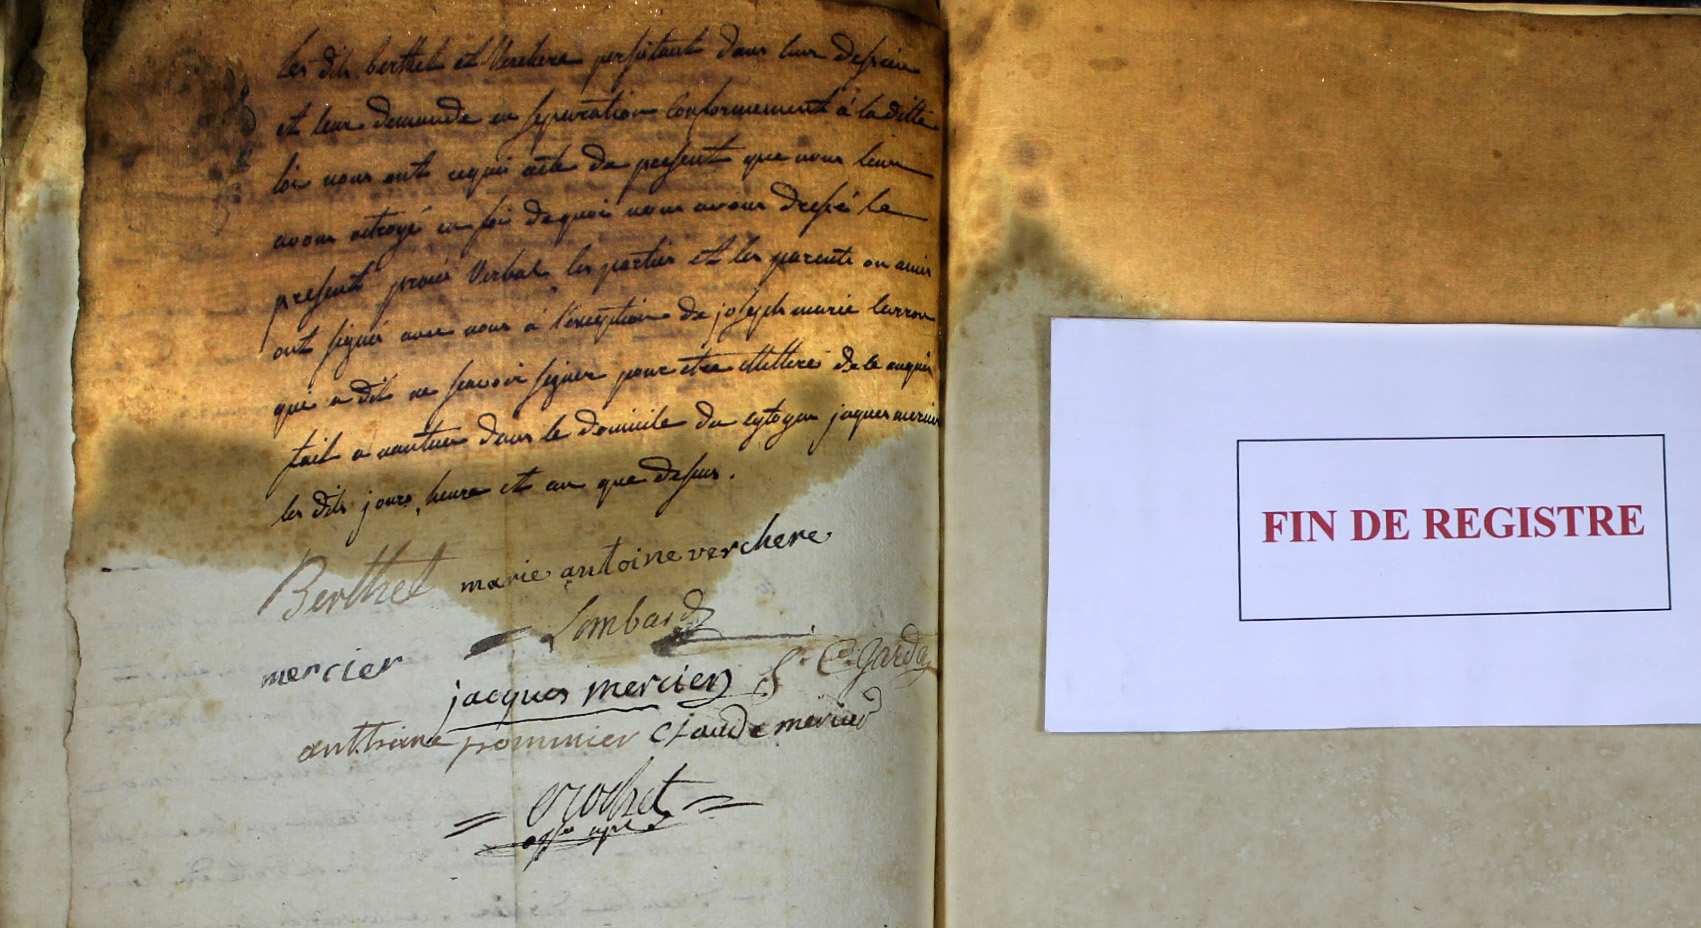 les dits berthet et Verchere persistant dans leur dessein
et leur demande en separation conformement a la ditte
loi nous ont requis acte du present que nous leur
avons octroyé en foi de quoi nous avons dressé le
present procès Verbal, les parties et les parents ou amis
ont signés avec nous a l'exception de joseph marie
qui a dit ne savoir signer pour etre illitteré de ce enquis
fait a nantua dans le domicile du cytoyen jaques mercier
les dits jours, heure et an que dessus.
Berthet marie antoine verchere
Lombard
mercier
jacques mercier
anthiene pommier Claude mercier
crochet
FIN DE REGISTRE